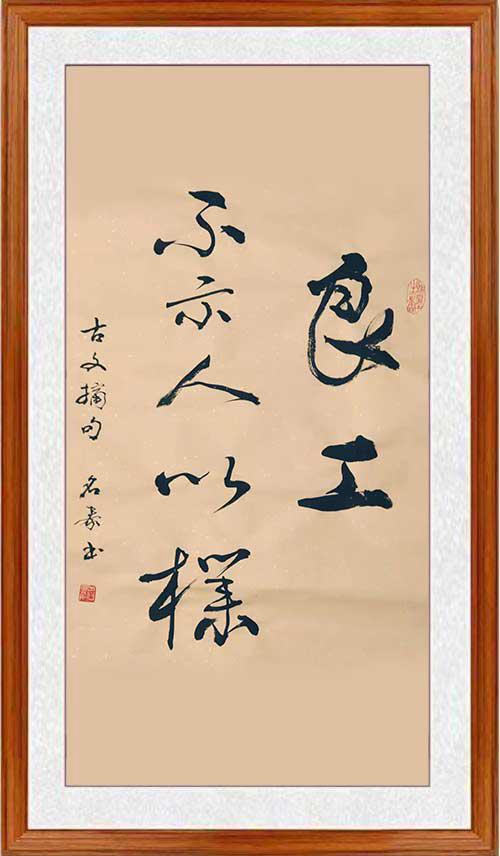 良工
不示人以樸
古文摘句 名泰书